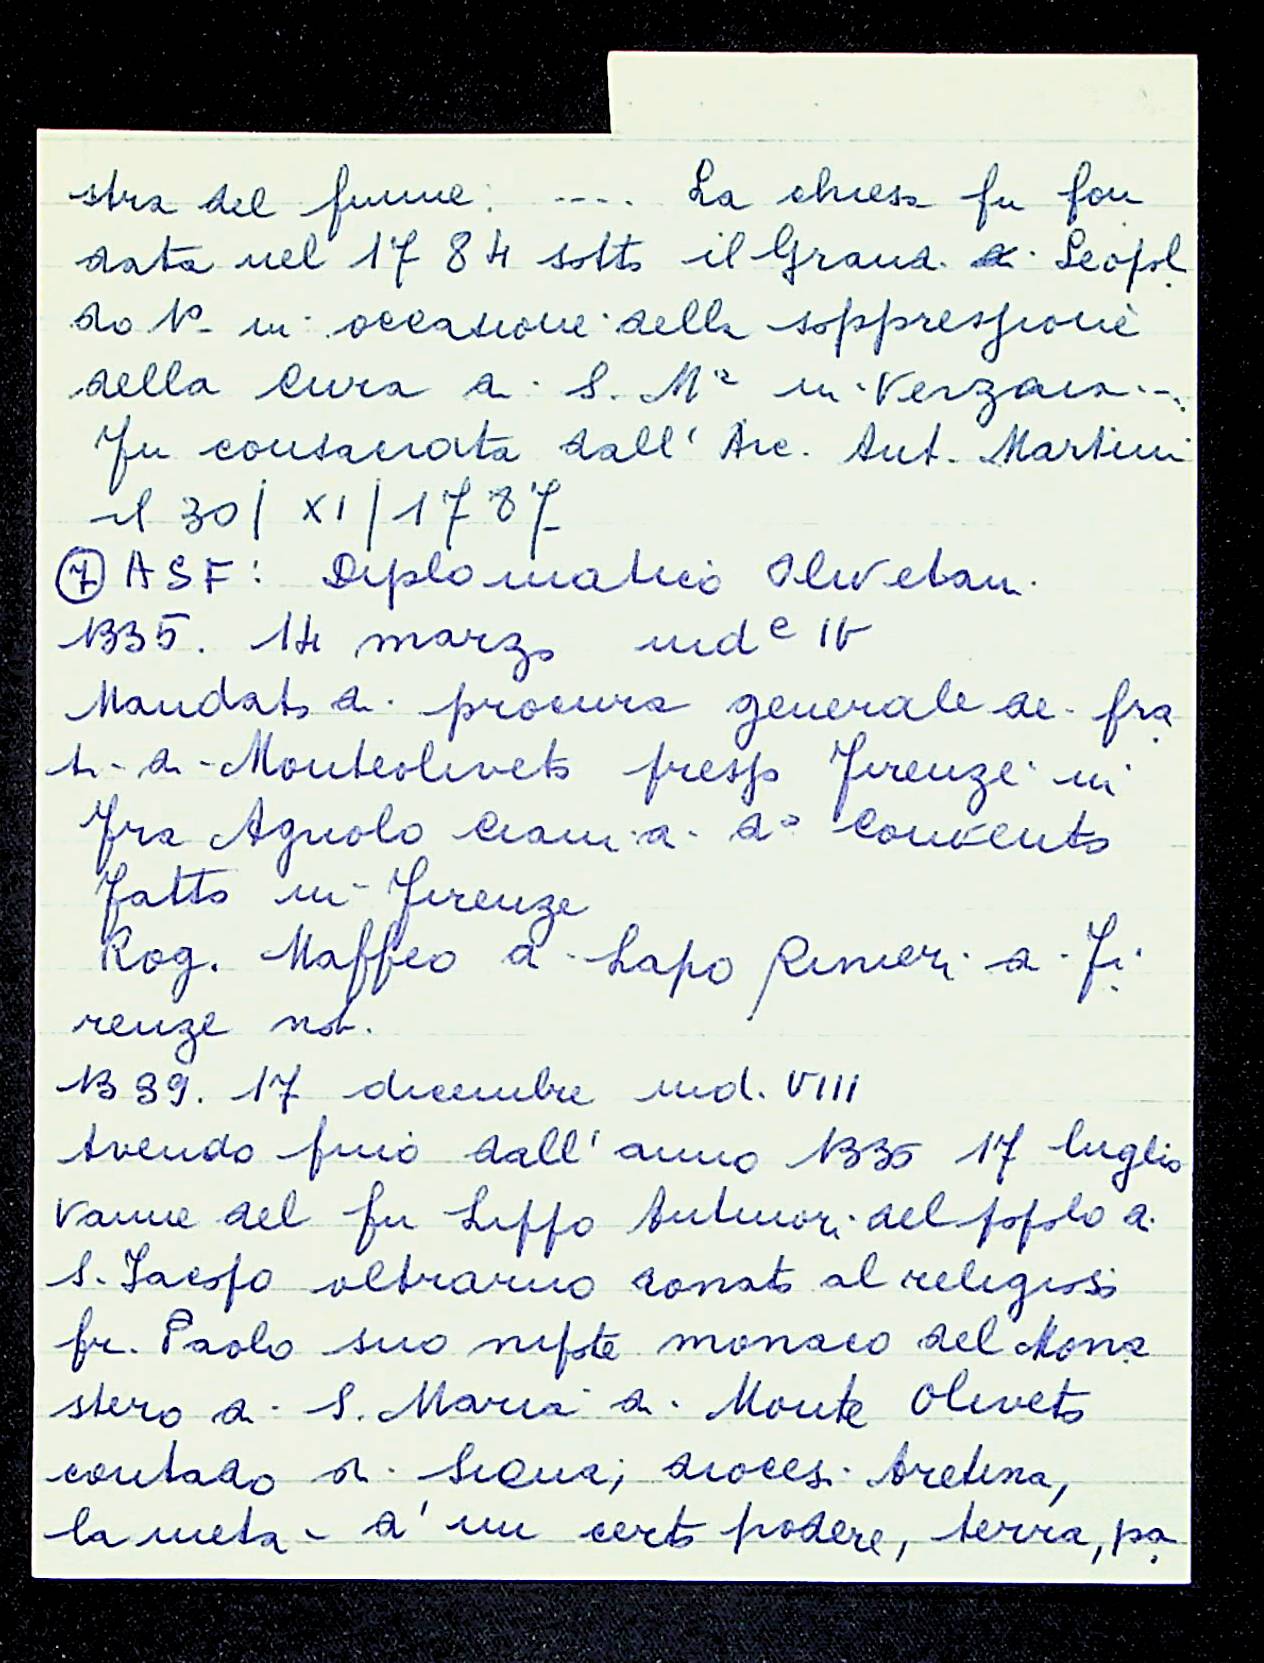 stra del fiume: .... La chiesa fu fon
data nel 1784 sotto il Grand. di Leopol
do Iº in occasione della soppressione
della Cura di S. Mª in Verzaia...
Fu consacrata dall' Arc. Ant. Martini
il 30/XI/1787
⑦ ASF: Diplomatico Olivetani
1335. 14 marzo indᵉ IV
Mandato di procura generale dei fra
ti di Monteoliveto presso Firenze in
Fra Agnolo Ciani di dº Convento
Fatto in Firenze
Rog. Maffeo di Lapo Rinieri di Fi
renze not.
1339. 17 dicembre ind. VIII
Avendo fino dall' anno 1335 17 luglio
Vanne del fu Lippo Antinori del popolo di
S. Iacopo oltrarno donato al religioso
fr. Paolo suo nipote monaco del Mona
stero di S. Maria di Monte Oliveto
contado di Siena, diocesi Aretina,
la metà d' un certo podere, terra, pa